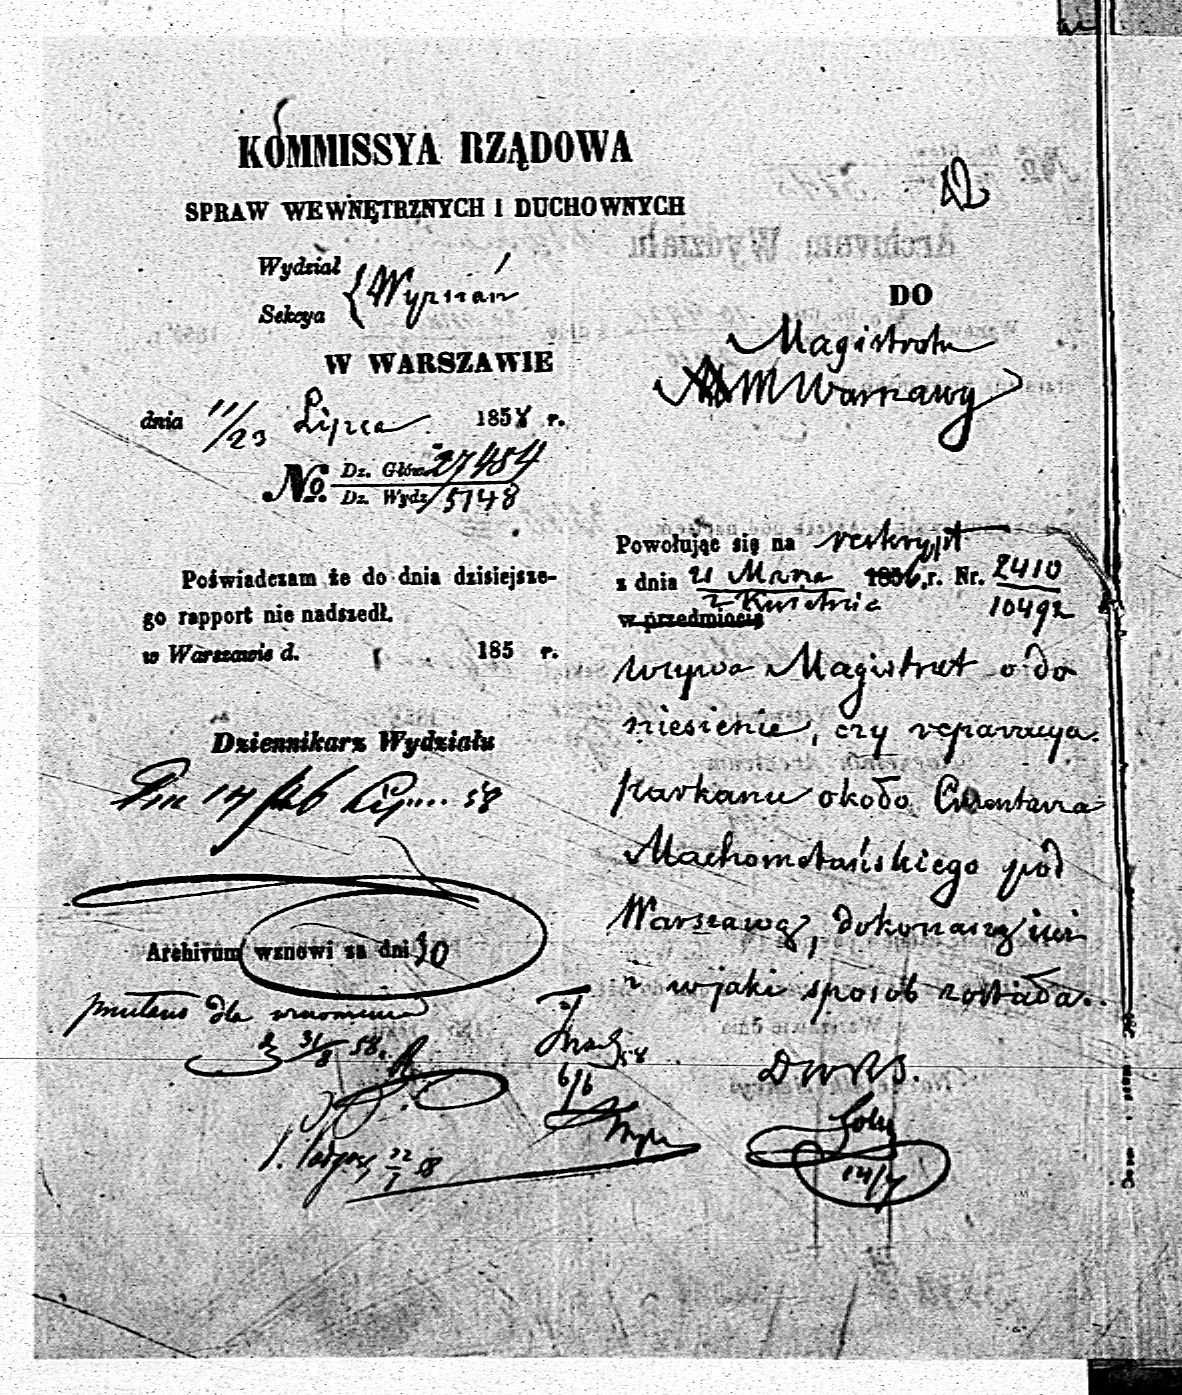 KOMMISSYA RZĄDOWA
SPRAW WEWNĘTRZNYCH I DUCHOWNYCH
Wydział
Sekcya
Wyznań
W WARSZAWIE
dnia 11/23 Lipca 1858 r.
No. Dz. Głów. 27484
Dz. Wydz. 5748
Poświadczam że do dnia dzisiejsze-
go rapport nie nadszedł.
w Warszawie d. 185 r.
Dziennikarz Wydziału
58
Archivum wznowi za dni 10
dla
31/8 58.
22
DO
Magistratu
M Warszawy
Powołując się na reskrypt
z dnia 21 Marca 1856 r. Nr. 2410
2 Kwietnia 10492
w przedmiocie
wzywa Magistrat o do
niesienie, czy reparacya
Parkanu około Cmentarza
Machometańskiego pod
Warszawą, dokonaną już
i w jaki sposób została.
14/7